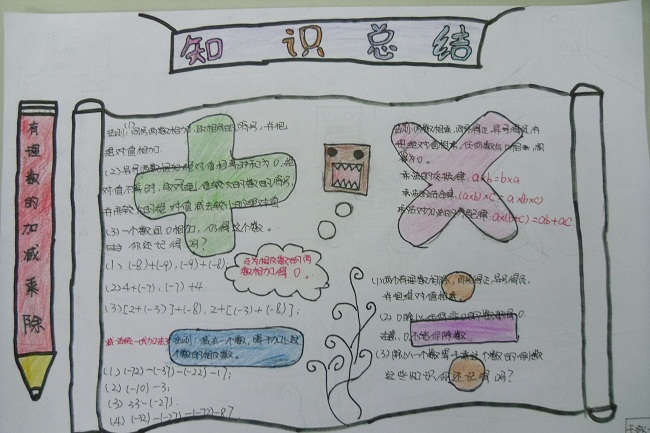 知识总结
有理数的加减乘除
法则:(1)同号两数相加,取相同的符号,并把
绝对值相加.
(2)异号两数相加,绝对值相等时和为0,绝
对值不等时,取绝对值较大的数的符号,
并用较大的绝对值减去较小的绝对值
(3)一个数同0相加,仍得这个数。
你还记得吗?
(1)(-8)+(-9),(-9)+(-8)
(2)4+(-7),(-7)+4
(3)[2+(-3)]+(-8),2+[(-3)+(-8)];
互为相反数的两
数相加得0。
法则:减去一个数,等于加上这
个数的相反数。
(1)(-72)-(-37)-(-22)-17;
(2)(-10)-3;
(3)33-(-27)
(4)(-32)-(-27)-(-72)-87
法则:两数相乘,同号得正,异号得负,并
把绝对值相乘,任何数与0相乘,
为0。
乘法的交换律:a×b=b×a
乘法的结合律:(a×b)×c=a×(b×c)
乘法对加法的分配律:a×(b+c)=ab+ac
(1)两个有理数相除,同号得正,异号得负,
并把绝对值相除。
(2)0除以任何非0的数都得0.
注意:0不能作除数
(3)除以一个数等于乘这个数的倒数
这些知识你还记得吗?